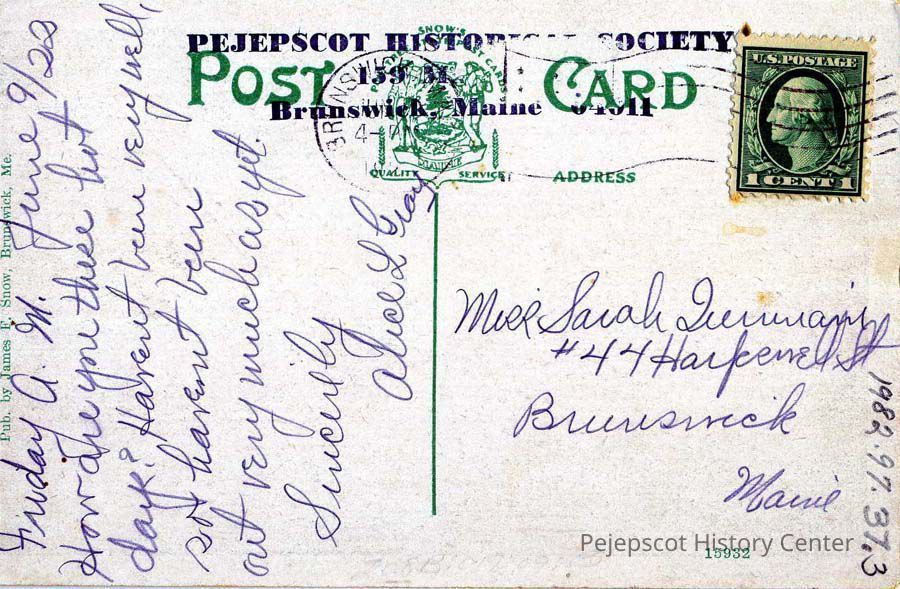 PEJEPSCOT HISTORICAL SOCIETY
159
Brunswick, Maine 04011
SNOW'S
POST CARD
MAINE
QUALITY SERVICE
ADDRESS
BRUNSWICK
U.S. POSTAGE
1 CENT 1
Pub. by James F. Snow, Brunswick, Me.
Friday A. M. June 9/22
How are you these hot
days? Havent been very well,
so havent been
out very much as yet.
Sincerely
Alice L Gray
Miss Sarah
#44 Harpswell St
Brunswick
Maine
1982.97.37.3
Pejepscot History Center
15932